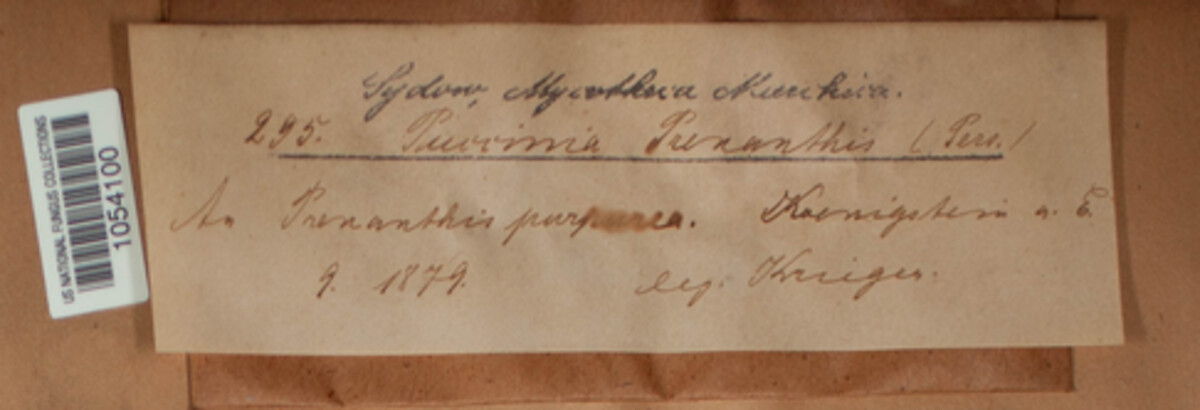 Sydow, Mycotheca Marchica.
295. Puccinia Prenanthis (Pers.)
An Prenanthis purpurea. Koenigstein a. E.
9. 1879. leg. Krieger.
US NATIONAL FUNGUS COLLECTIONS
1054100